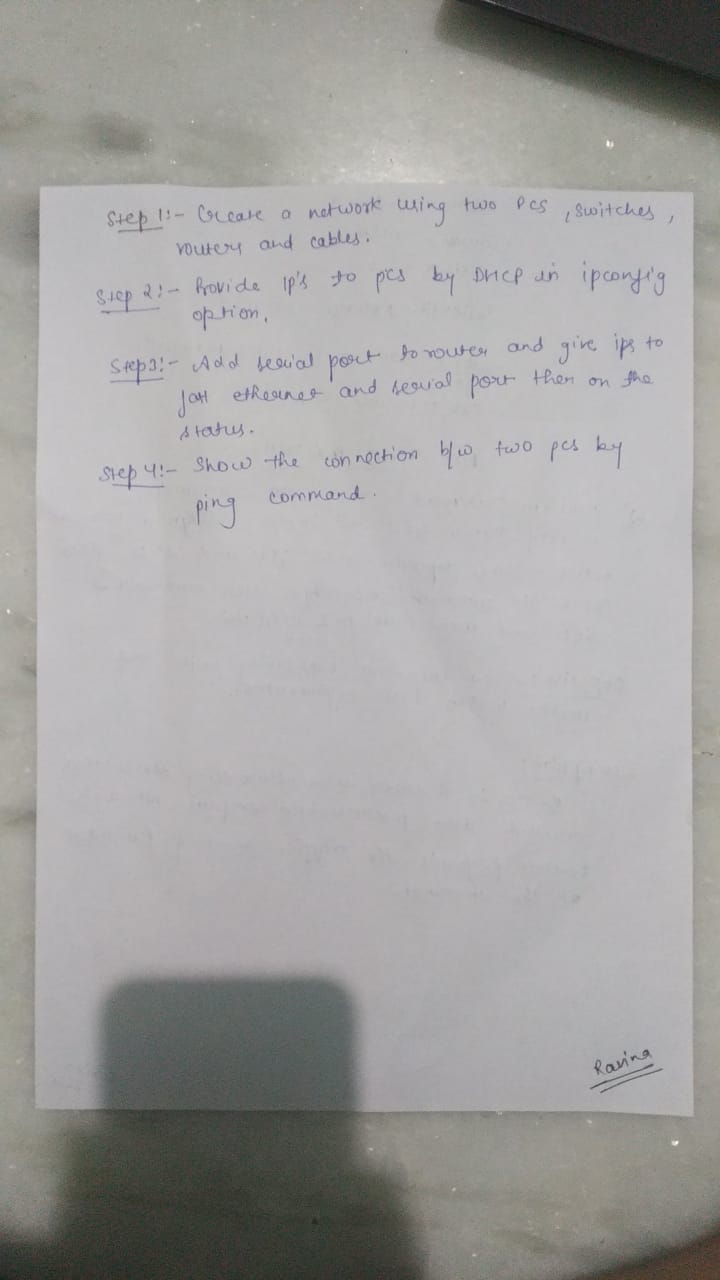 Step 1:- Create a network using two PCs, switches,
routers and cables.
Step 2:- Provide IP's to pcs by DHCP in ipconfig
option.
Step3:- Add serial port to router and give ips to
fast ethernet and serial port then on the
status.
Step 4:- Show the connection b/w two pcs by
ping command.
Ravina